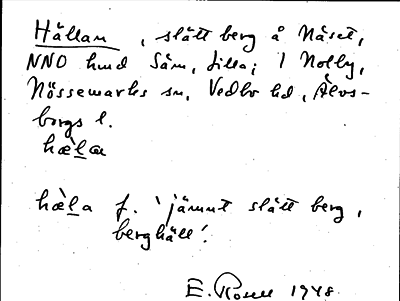 Hällan, slätt berg å Näset,
NNO hund Säm, lilla; I Nolby,
Nössemarks sn, Vedbo hd, Älvs-
borgs l.
hæ̀l̲a
hæ̀l̲a f. 'jämnt slätt berg,
berghäll'.
E. 1948